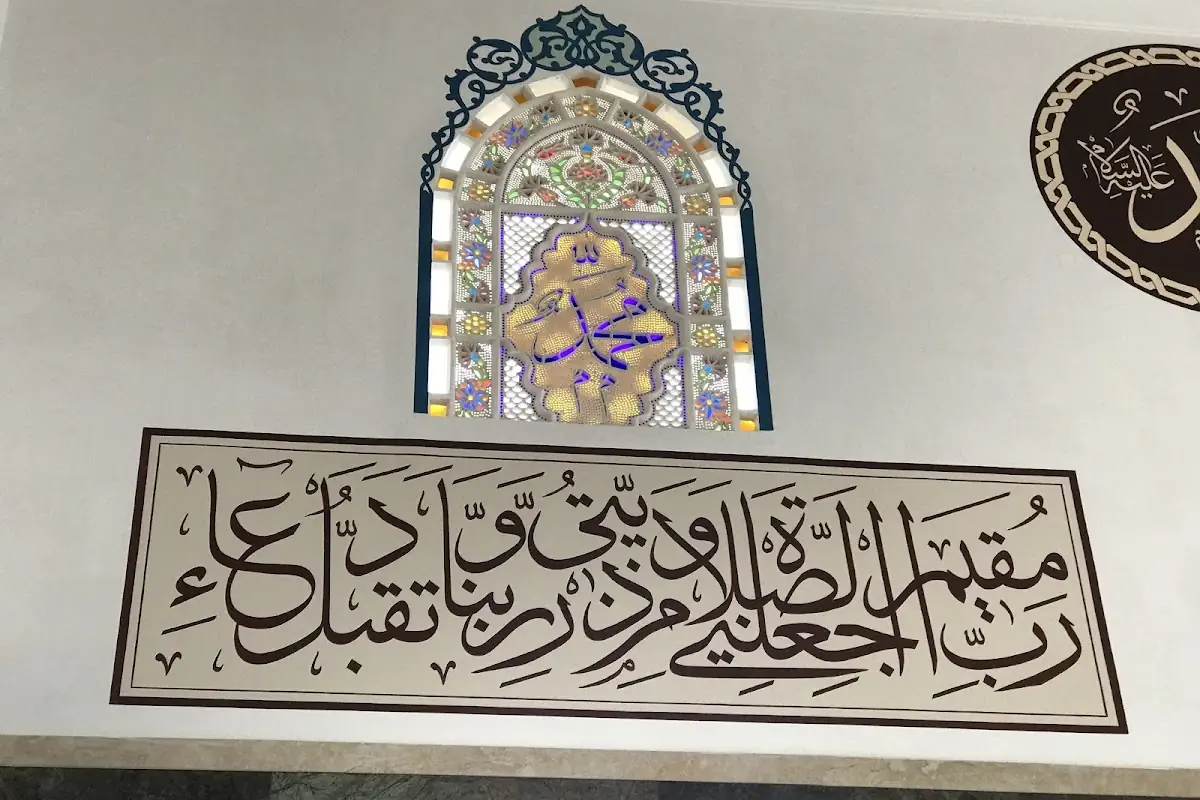 محمد
عَلَيْهِ السَّلَامُ
رَبِّ اجْعَلْنِي مُقِيمَ الصَّلَاةِ وَمِنْ ذُرِّيَّتِى رَبَّنَا وَتَقَبَّلْ دُعَآءِ